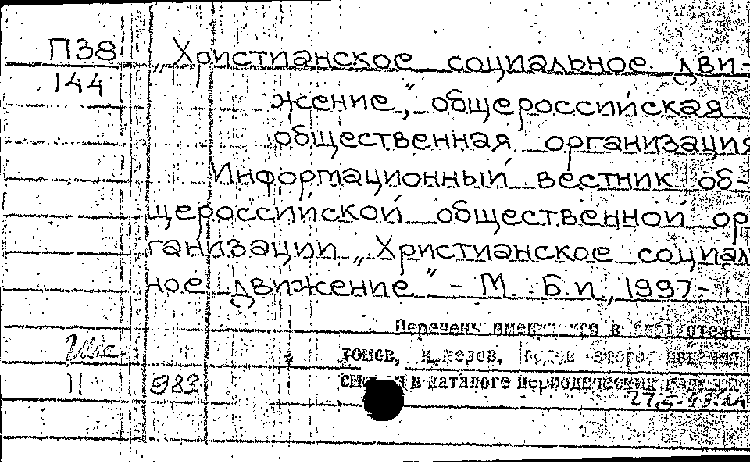 П38 „Христианское социальное дви-
144 жение", общероссийская
общественная организация
Информационный вестник об-
щероссийской общественной ор
ганизации „Христианское социал
ное движение" - М.: Б.и., 1997-
Перечень имеющихся в библиотеке
томов, номеров,
в каталоге периодических
11 983